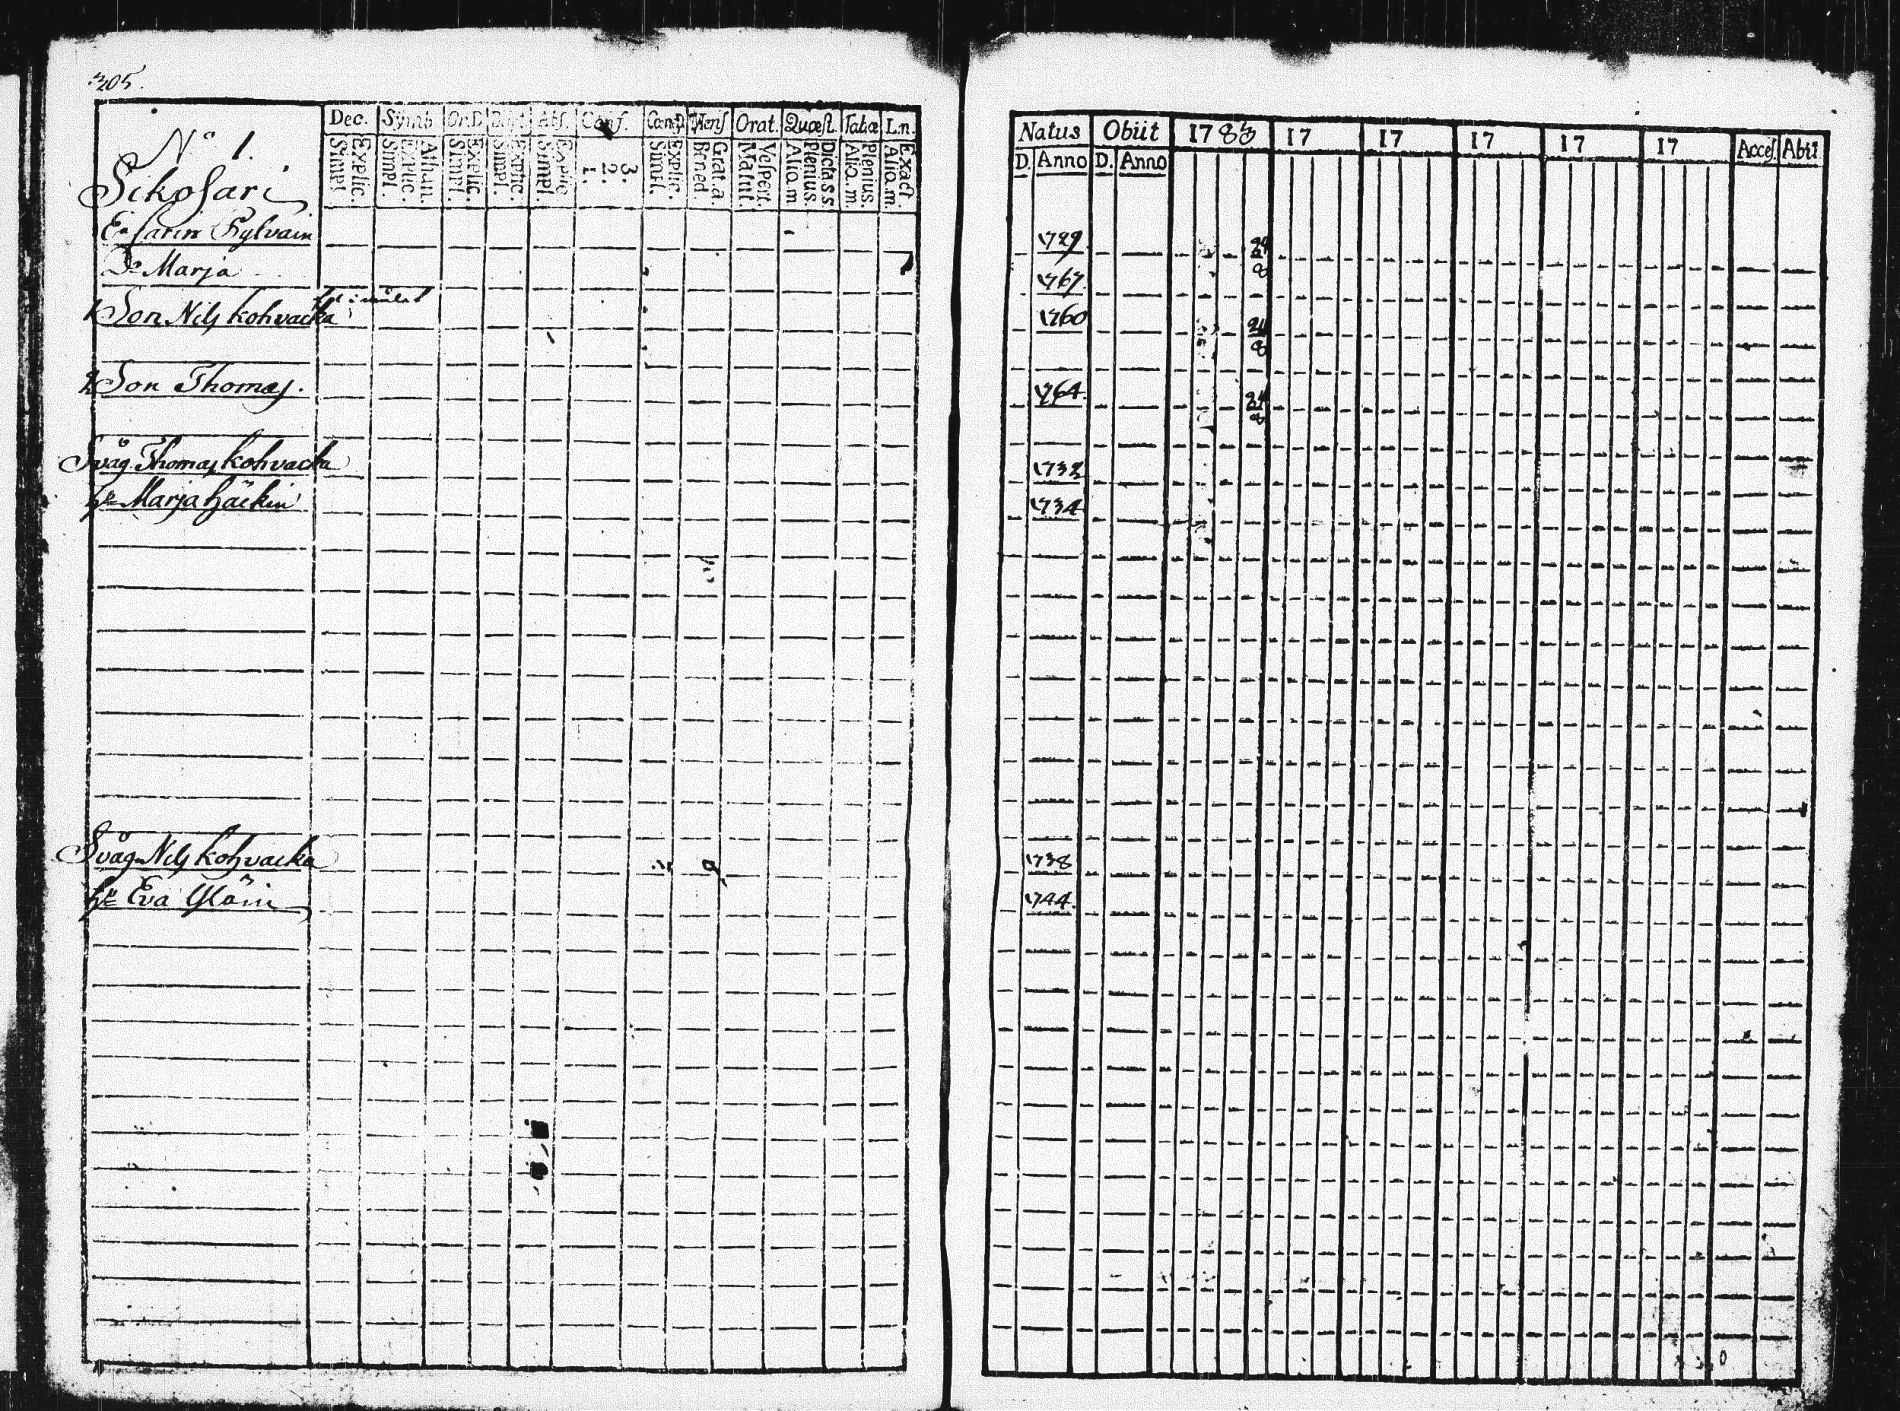 205.
Dec. Symb. Or.D. Bapt. Abs. Conf. Cœn.D Menſ Orat. Quæſt. Tabæ L.n.
Simpl. Explic. Simpl. Explic. Athan. Simpl. Explic. Simpl. Explic. Simpl. Explic. 1. 2. 3. Simpl. Explic. Bened. Grat. a. Matut. Veſpert. Alio. m Plenius. Dicta s. s Alio. m Plenius. Alio. m. Exact.
Natus Obiit 1783 17 17 17 17 17 Acceſ. Abiit
D. Anno D. Anno
N° 1.
Sikosari
E. Carin Sylvain 1729 24 8
Dr Marja 1767.
1 Son Nils Kohvacka 1760 24 8
2 Son Thomas. 1764. 24 8
Svåg Thomas Kohvacka 1732
h. Marja Häckin 1734
Svåg Nils Kohvacka 1738
h. Eva 1744.